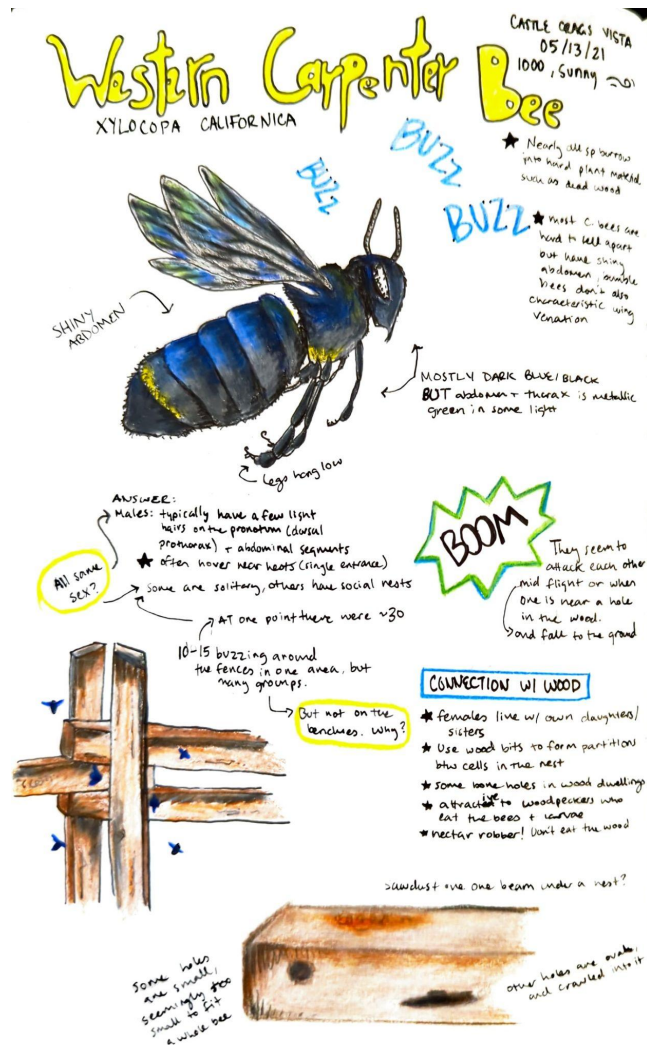 Western Carpenter Bee
XYLOCOPA CALIFORNICA
CASTLE CRAGS VISTA
05/13/21
1000, Sunny
BUZZ
BUZZ
BUZZ
★ Nearly all sp burrow
into hard plant material
such as dead wood
★ most C. bees are
hard to tell apart
but have shiny
abdomen, bumble
bees don't also
characteristic wing
venation
SHINY
ABDOMEN
MOSTLY DARK BLUE/BLACK
BUT abdomen + thorax is metallic
green in some light
Legs hang low
ANSWER:
Males: typically have a few light
hairs on the pronotum (dorsal
prothorax) + abdominal segments
★ often hover near nests (single entrance)
All same
sex?
some are solitary, others have social nests
AT one point there were ~30
10-15 buzzing around
the fences in one area, but
many groups.
But not on the
benches. Why?
BOOM
They seem to
attack each other
mid flight or when
one is near a hole
in the wood.
and fall to the ground
CONNECTION W/ WOOD
★ females live w/ own daughters/
sisters
★ Use wood bits to form partition
btw cells in the nest
★ some bore holes in wood dwellings
★ attractive to woodpeckers who
eat the bees + larvae
★ nectar robber! Don't eat the wood
sawdust one one beam under a nest?
Some holes
are small,
seemingly too
small to fit
a whole bee
other holes are ovate,
and crawled into it